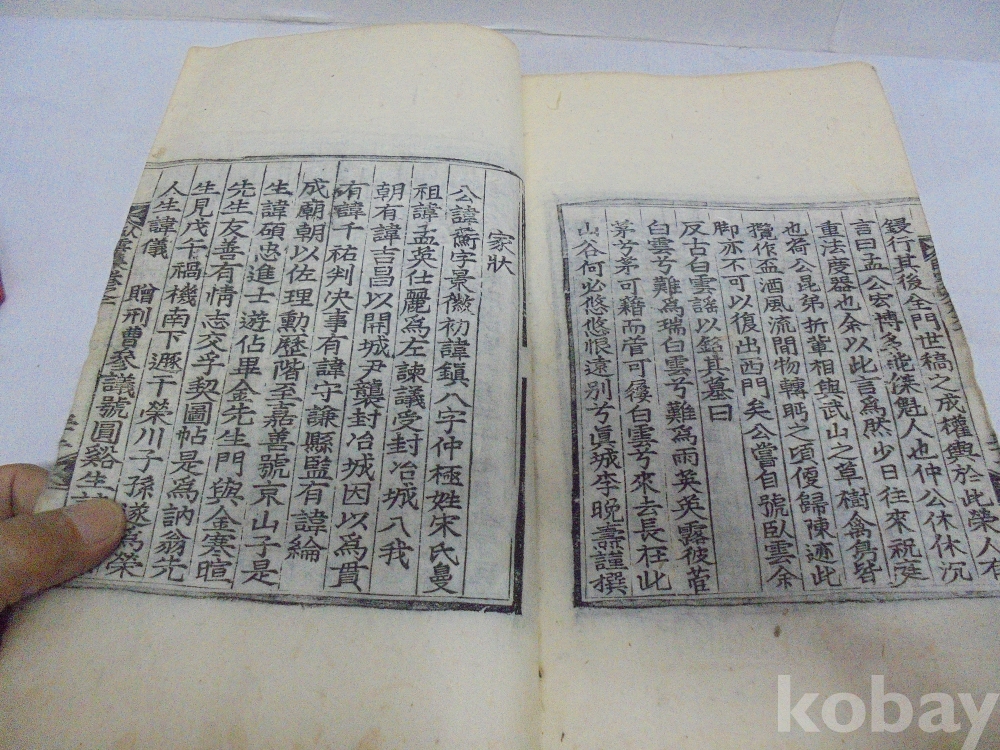 鋟行其後全門世稿之成權輿於此榮人有
言曰孟公宏博多能傑魁人也仲公休休沉
重法度器也余以此言爲然少日往來祝筵
也荷公昆弟折輩相與武山之草樹禽鳥皆
攬作盃酒風流間物轉眄之頃便歸陳迹此
脚亦不可以復出西門矣公嘗自號臥雲余
反古白雲謠以銘其墓曰
白雲兮難爲瑞白雲兮難爲雨英英露彼菅
茅兮茅可藉而菅可屨白雲兮來去長在此
山谷何必悠悠恨遠別兮眞城李晩燾謹撰
家狀
公諱 字景徽初諱鎭八字仲極姓宋氏曼
祖諱孟英仕麗爲左諫議受封冶城八我
朝有諱吉昌以開城尹襲封冶城因以爲貫
有諱千祐判决事有諱守謙縣監有諱綸
成廟朝以佐理勳歷階至嘉善號京山子是
生諱碩忠進士遊佔畢金先生門與金寒暄
先生友善有情志交孚契圖帖是爲訥翁先
生見戊午禍機南下遯于榮川子孫遂爲榮
人生諱儀 贈刑曹參議號圓谿生
kobay